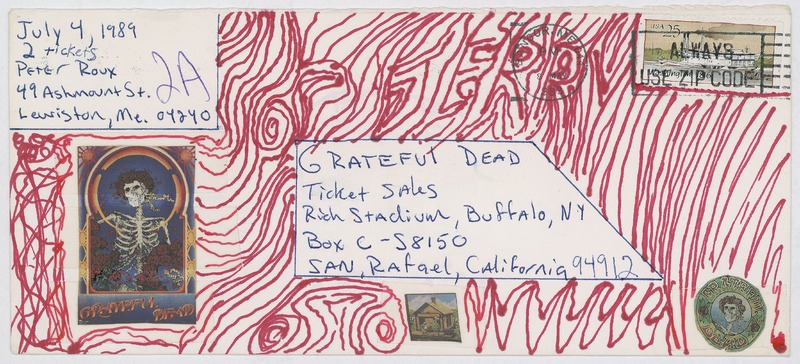 July 4, 1989
2 tickets
Peter Roux
49 Ashmount St.
Lewiston, Me. 04240
2A
USA 25
ALWAYS
USE ZIP CODE
GRATEFUL DEAD
Ticket Sales
Rich Stadium, Buffalo, NY
Box C-S8150
SAN, Rafael, California 94912
GRATEFUL DEAD